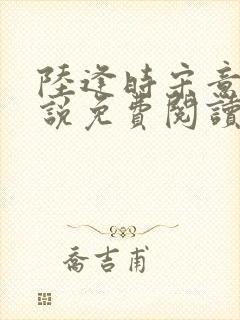 陸逢時宋意
說免費閱讀
喬吉甫